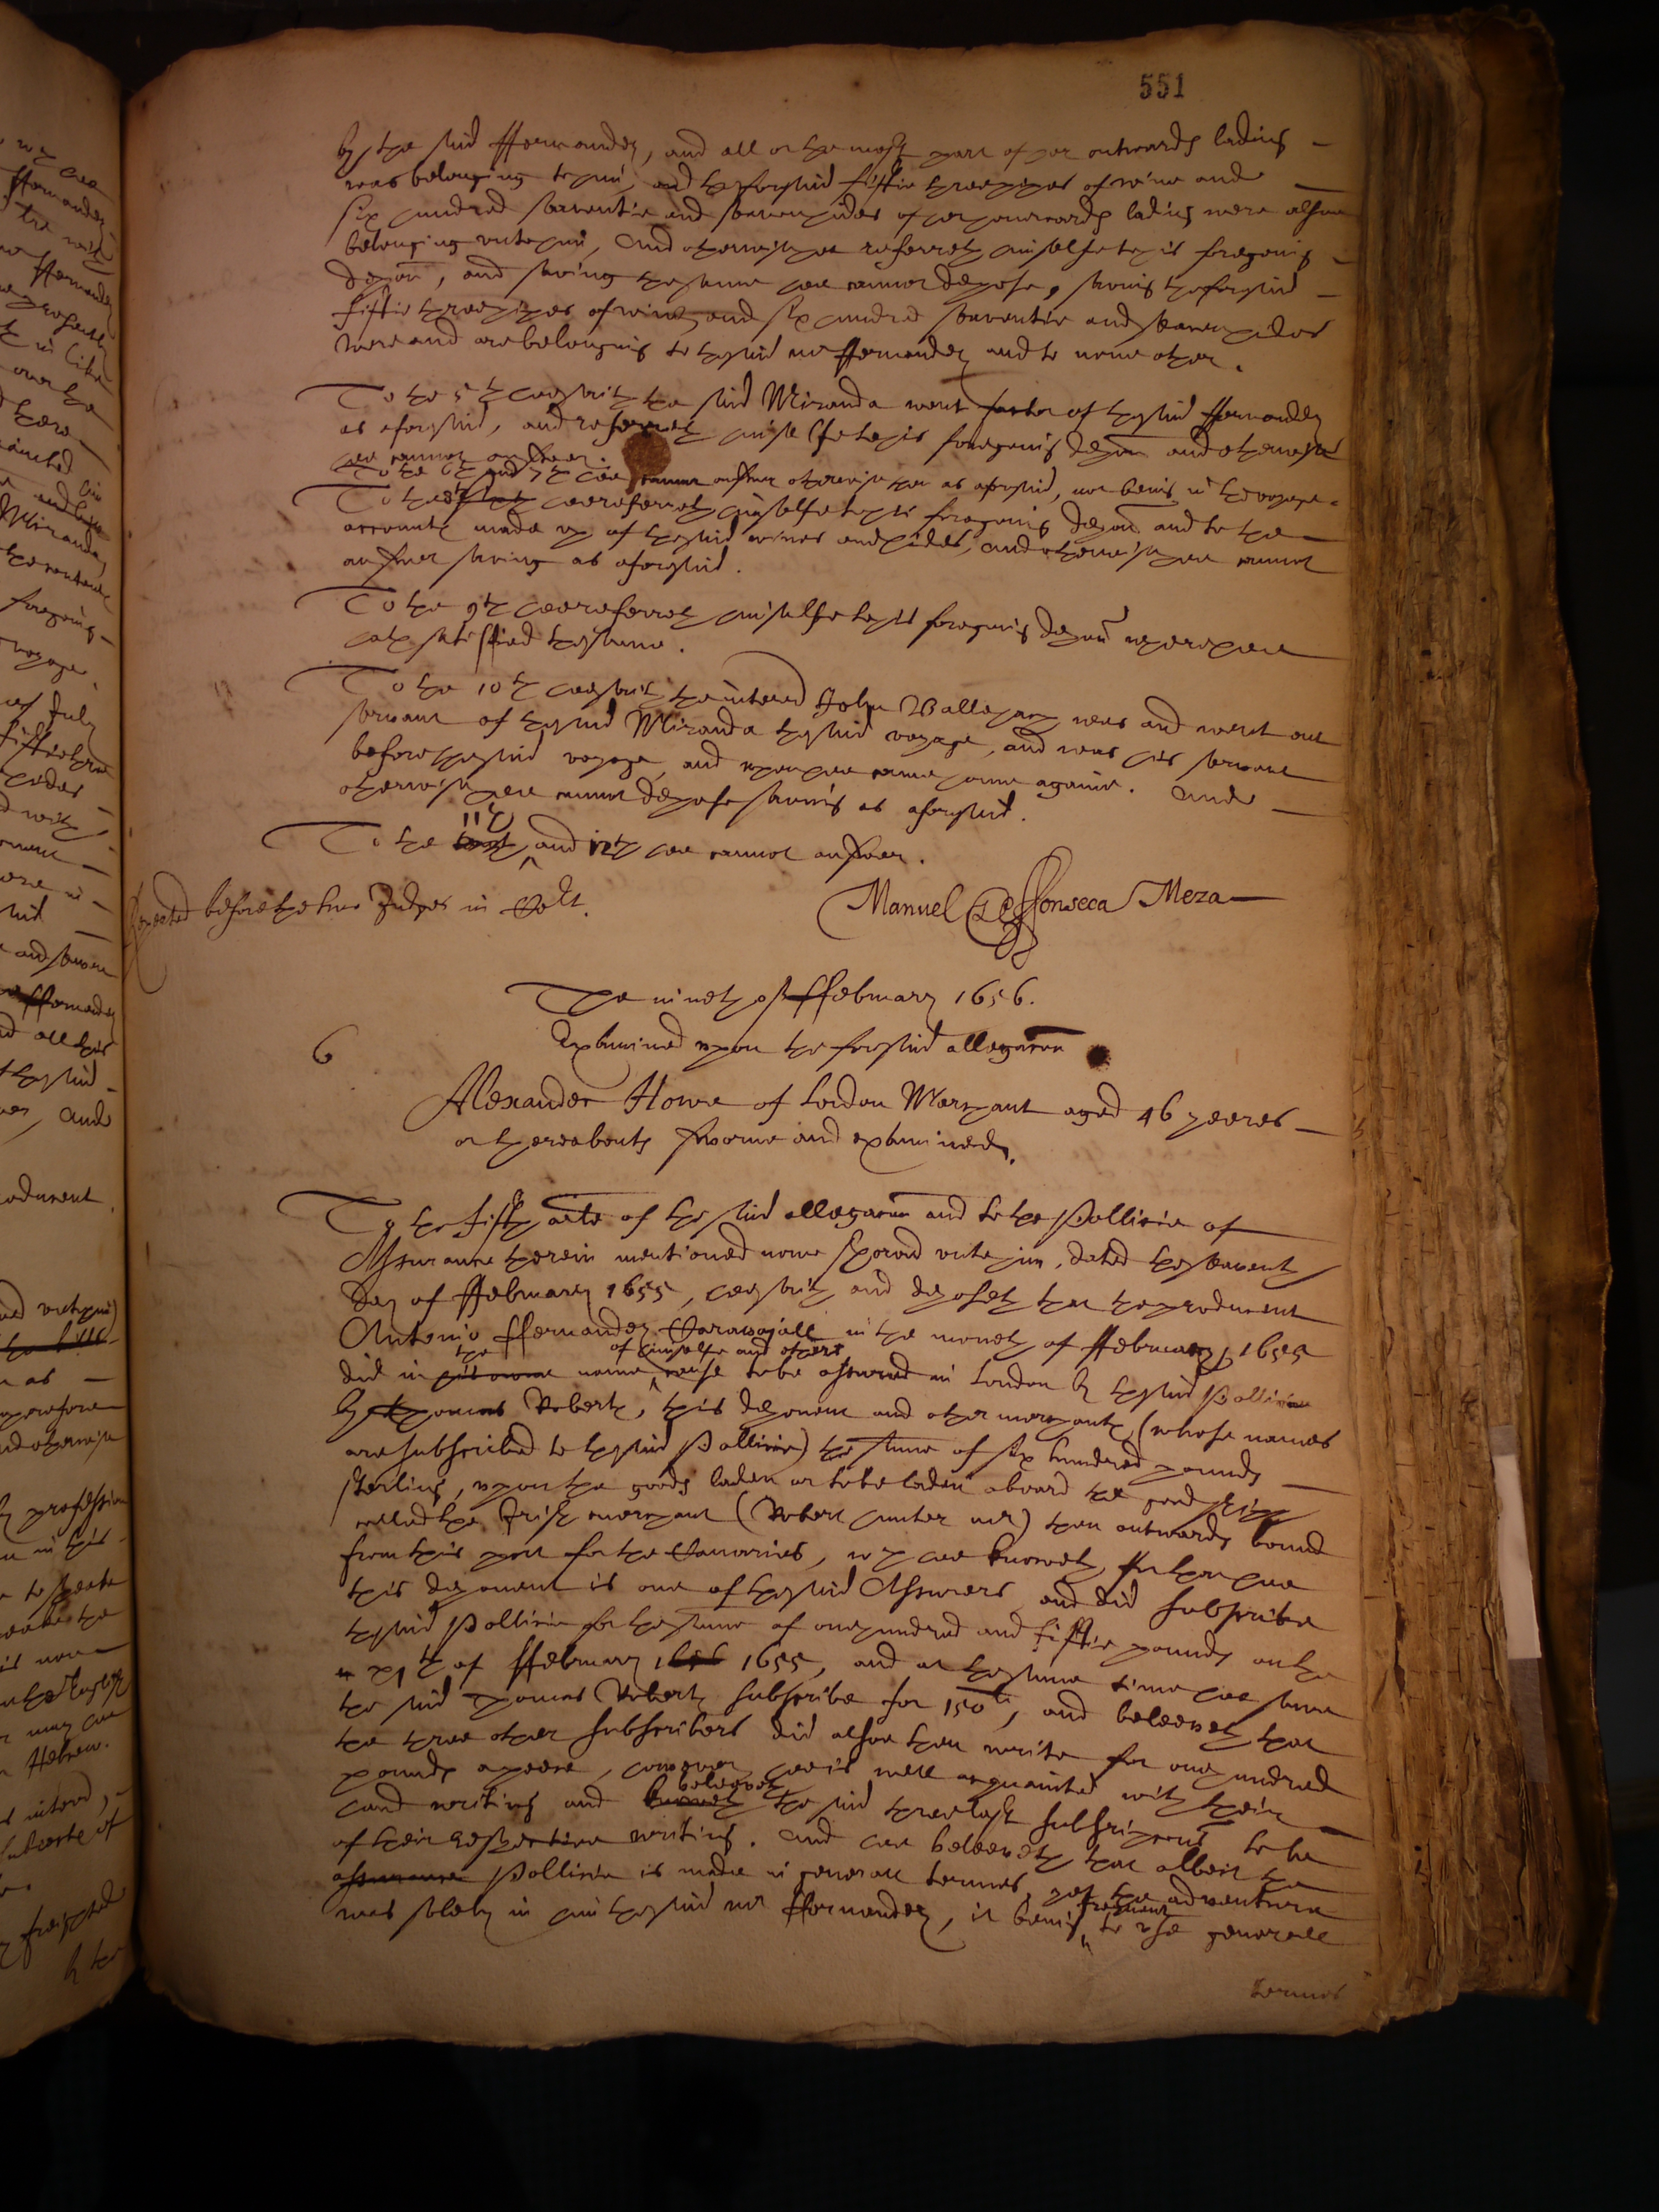 551
by the said ffernandez, and all or the most part of her outwards lading
was belonging to him, and the foresaid fiftie three pipes of wine and
six hundred seaventie and seaven hides of her homewards lading were alsoe
belonging unto him, And otherwise hee referreth himselfe to his foregoeing
deposn, and saving the same hee cannot depose, saving the foresaid
fiftie three pipes of wine and six hundred seaventie and seaven hides
were and are belonging to the said mr ffernandez and to none other.
To the 5th hee saith the said Miranda went factor of the said ffernandez
as aforesaid, and referreth himselfe to his foregoeing deposn and otherwise
hee cannot answer.
To the 6th and 7th hee cannot answer otherwise than as aforesaid, not being in the voyage.
To the 8th hee referreth himselfe to his foregoeing deposn and to the
accounts made up of the said wines and hides, and otherwise hee cannot
answer saving as aforesaid.
To the 9th hee referreth himselfe to his foregoeing deposn wherein hee
hath satisffied the same.
To the 10th hee saith the interred John Ballehan was and went out
servant of the said Miranda the said voyage, and was his servant
before the said voyage, and when hee came home againe. And
otherwise hee cannot depose saving as aforesaid.
To the 11th and 12th hee cannot answer.
Repeated before the two Judges in Colt.
Manuel de ffonseca Meza
The nineth of ffebruary 1656.
Examined upon the foresaid allegacon
6
Alexander Howe of London Merchant aged 46 yeeres
or thereabouts sworne and examined.
To the first arte of the said allegacon and to the Pollicie of
Assurance therein mentioned now shewed unto him, dated the seaventh
day of ffebruary 1655, hee saith and deposeth that the producent
Antonio ffernandez Caravajall in the moneth of ffebruary 1655
the of himselfe and others
did in his owne name cause to be assured in London by the said Pollicie
by Thomas Roberts, this deponent and other merchants (whose names
are subscribed to the said Pollicie) the summe of six hundred pounds
sterling, upon the goods laden or to be laden aboard the good ship
called the Irish merchant (Robert hunter mr) then outwards bound
from this port for the Canaries, wch hee knoweth for that hee
this deponent is one of the said Assurers and did subscribe
the said Pollicie for the summe of one hundred and fiftie pounds on the
xjth of ffebruary 1656 1655, and at the same time hee saw
the said Thomas Roberts subscribe for 150 li, and beleeveth that
the three other subscribers did alsoe then write for one hundred
pounds apeece, however hee is well acquainted with their
beleeveth
hand writing and knoweth the said three last subscripcons to be
of their respective writing. And hee beleeveth that albeit the
assurance Pollicie is made in generall termes, yet the adventure
frequent
was solely in him the said mr ffernandez, it being to use generall
termes